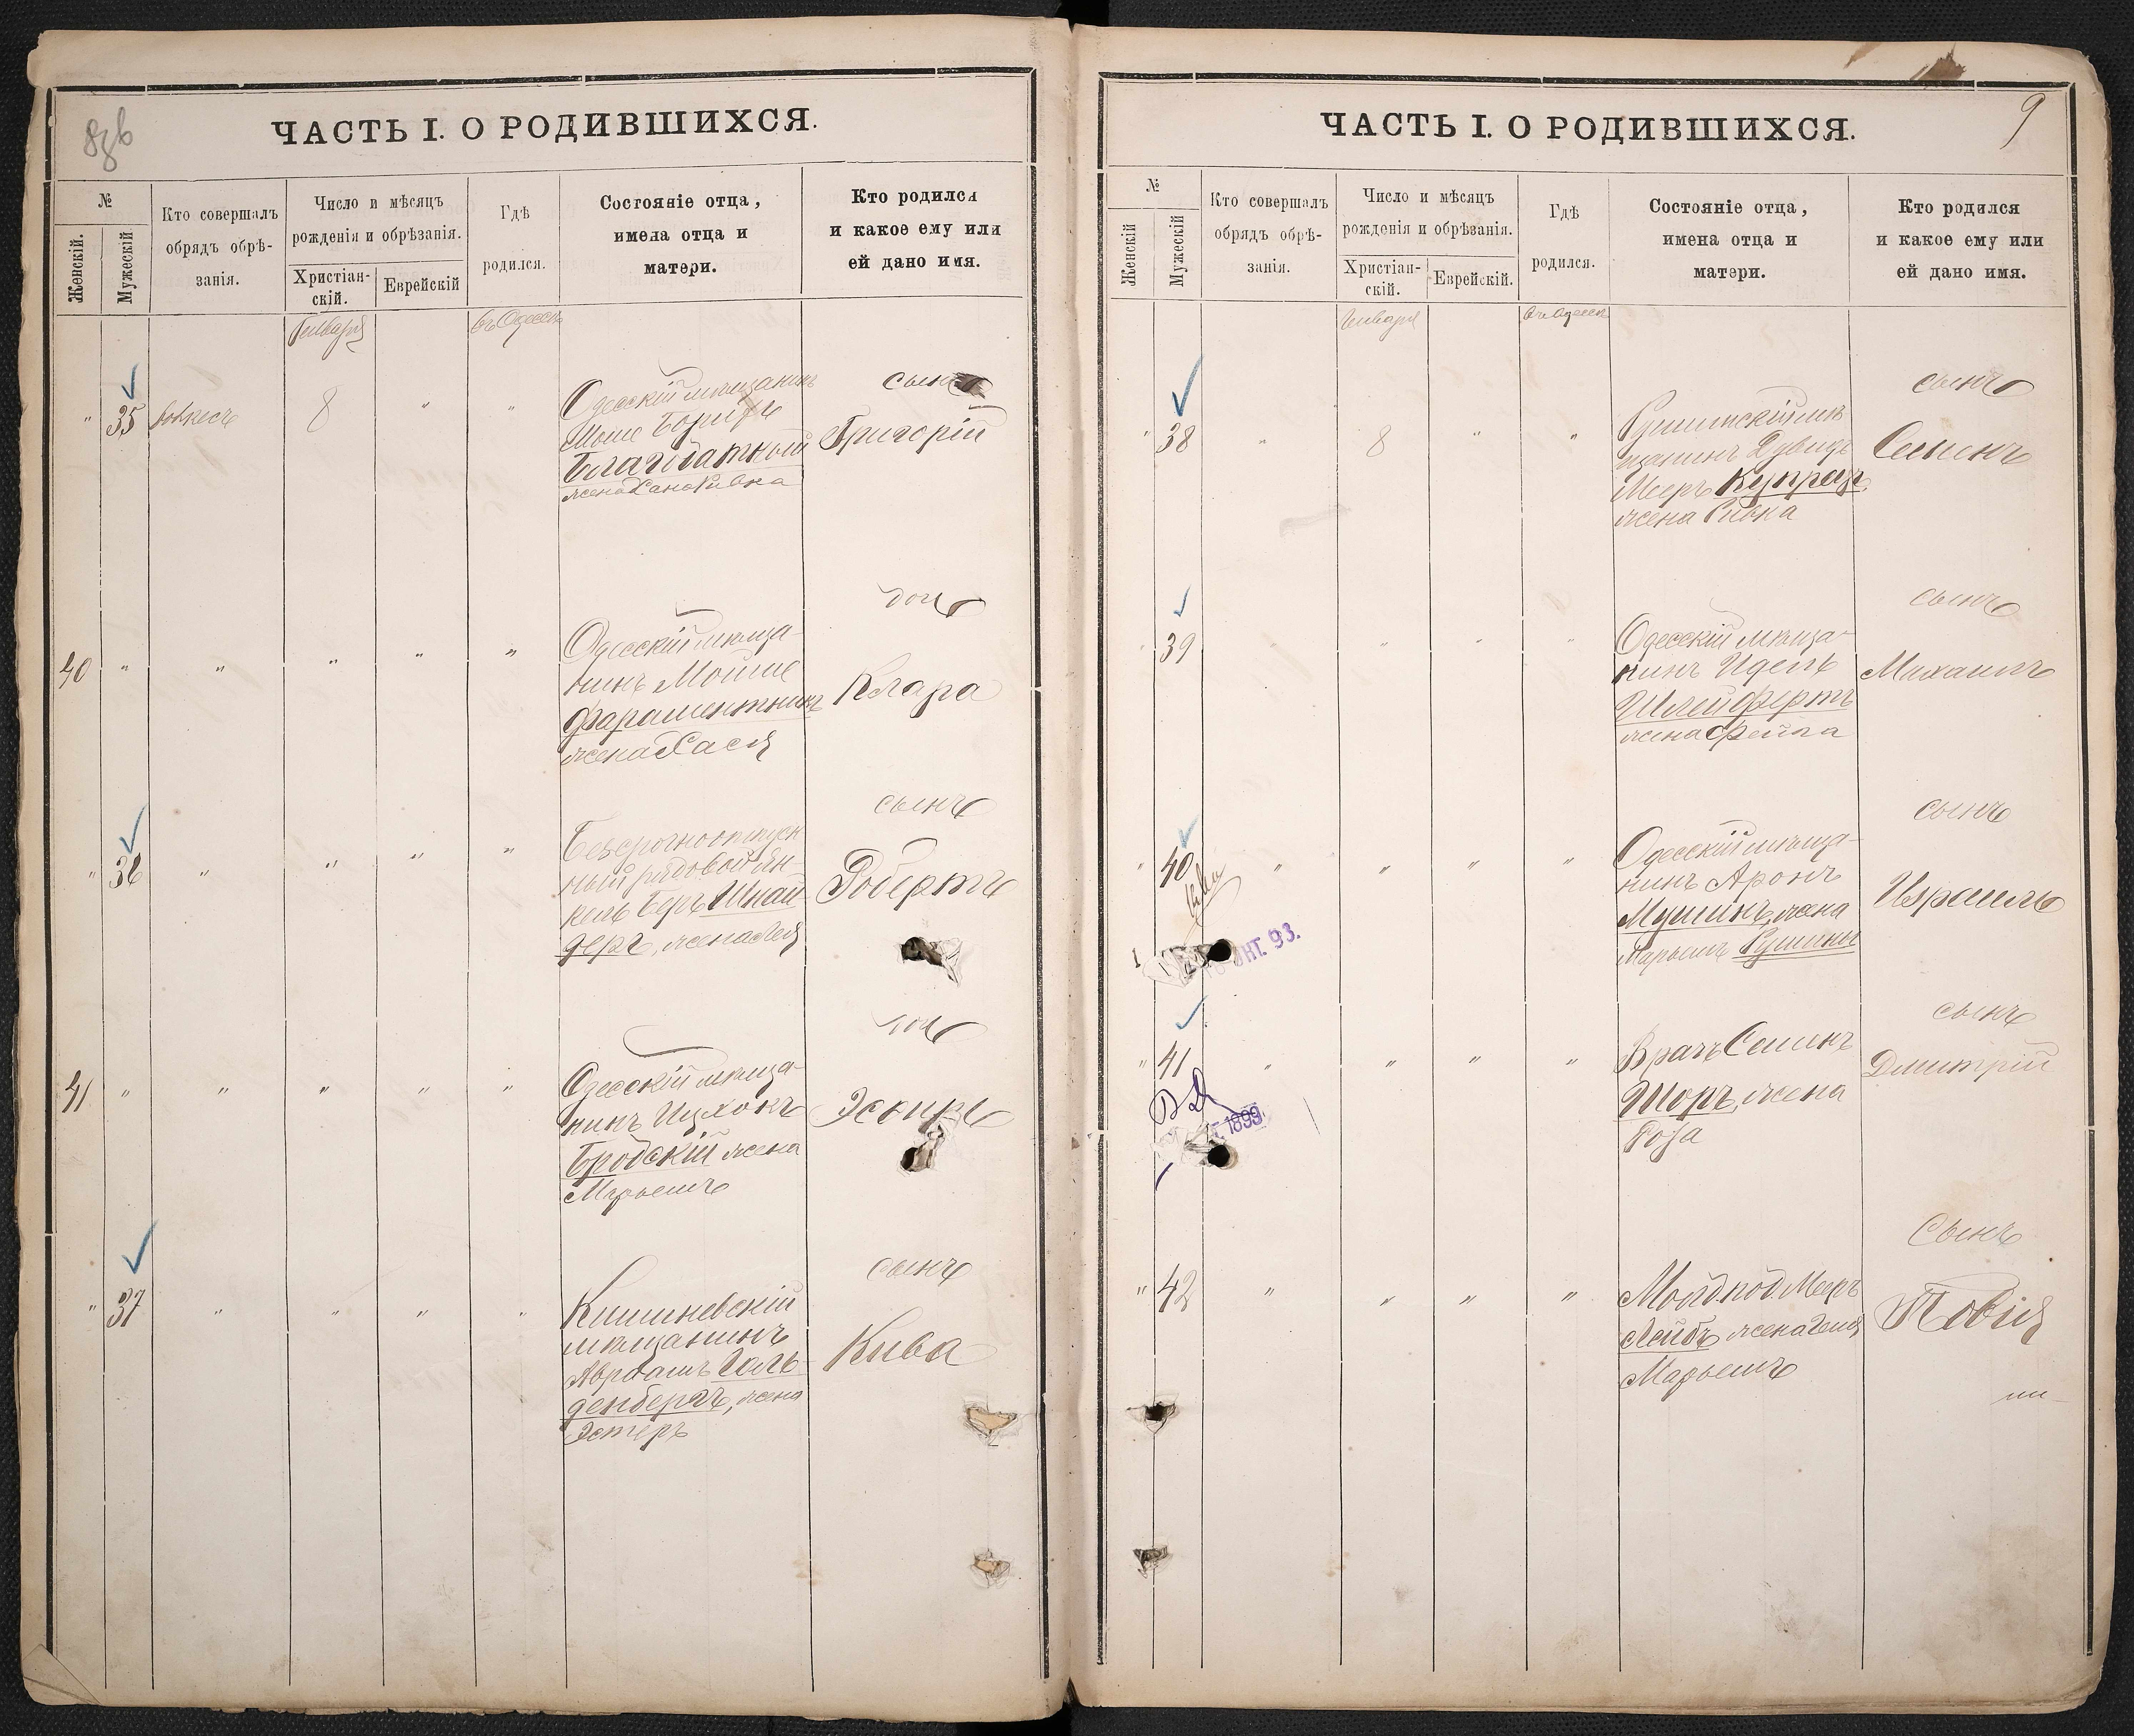 ЧАСТЬ I. О РОДИВШИХСЯ.
№
Женскій.
Мужескій
Кто совершалъ
обрядъ обрѣ-
занія.
Число и мѣсяцъ
рожденія и обрѣзанія.
Христіан-
скій.
Еврейскій
Гдѣ
родился.
Состояніе отца,
имена отца и
матери.
Кто родился
и какое ему или
ей дано имя.
Января
въ Одессѣ
" 35
8 " "
Одесскій мѣщанинъ
Мошe Борухъ
Благодатный
жена Хана Ривка
сынъ
Григорій
40 " " " " "
Одесскій мѣща-
нинъ Мойше
Фараментникъ
жена Хася
дочь
Клара
" 36 " " " "
Безсрочноотпуск
ный рядовой Ян-
кель Беръ Шнай
деръ, жена Лея
сынъ
Робертъ
41 " " " " "
Одесскій мѣща-
нинъ Ицхокъ
Бродскій жена
Марьемъ
дочь
Эсѳирь
" 37 " " " "
Кишиневскій
мѣщанинъ
Авраамъ Голь-
денбергъ, жена
Эстеръ
сынъ
Кива
ЧАСТЬ I. О РОДИВШИХСЯ.
9
№
Женскій
Мужескій
Кто совершалъ
обрядъ обрѣ-
занія.
Число и мѣсяцъ
рожденія и обрѣзанія.
Христіан-
скій.
Еврейскій.
Гдѣ
родился.
Состояніе отца,
имена отца и
матери.
Кто родился
и какое ему или
ей дано имя.
Января
въ Одессѣ
" 38 " 8 " "
мѣ-
щанинъ Дувидъ
Мееръ
жена Ривка
сынъ
Семенъ
" 39 " " "
Одесскій мѣща-
нинъ Идель
Шлейфертъ
жена Фейга
сынъ
Михаилъ
" 40 " " " "
Одесскій мѣща-
нинъ Аронъ
Мушинъ, жена
Марьемъ
сынъ
Израиль
93.
" 41 " " " "
Врачъ Семенъ
Шоръ, жена
Роза
сынъ
Дмитрій
1899
" 42 " " " "
Молд. под. Мееръ
Лейбъ жена Геня
Марьемъ
сынъ
Товія